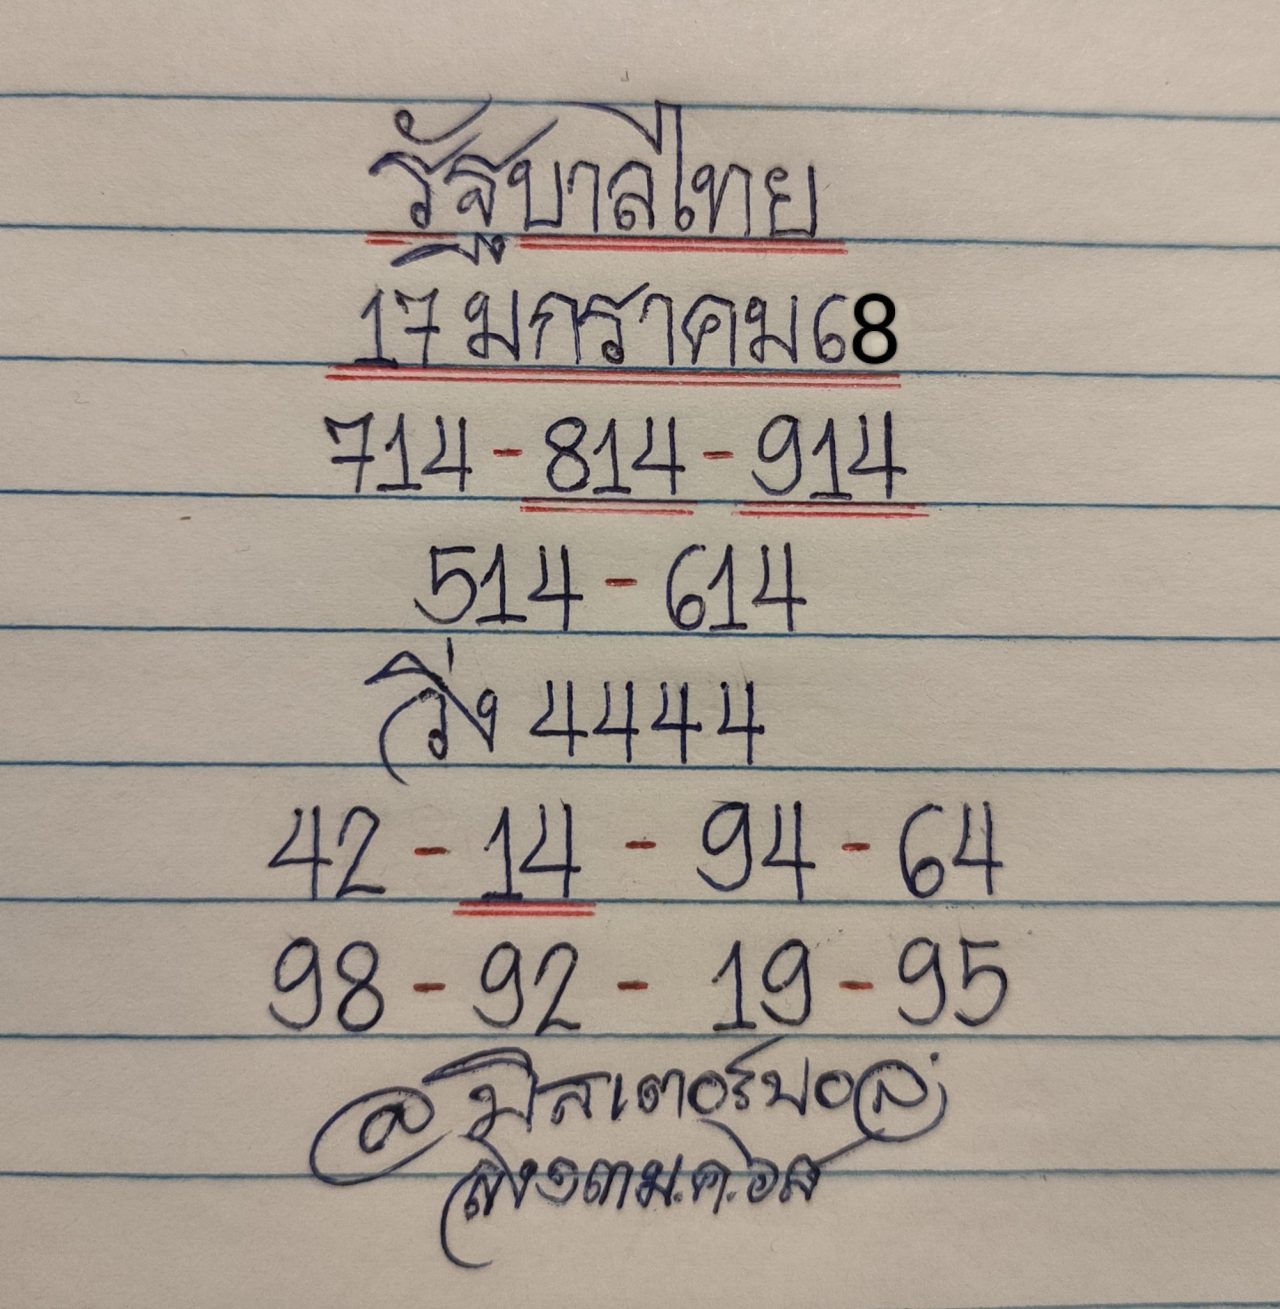 รัฐบาลไทย
17 มกราคม 68
714 - 814 - 914
514 - 614
วิ่ง 4444
42 - 14 - 94 - 64
98 - 92 - 19 - 95
@ มิสเตอร์บอล